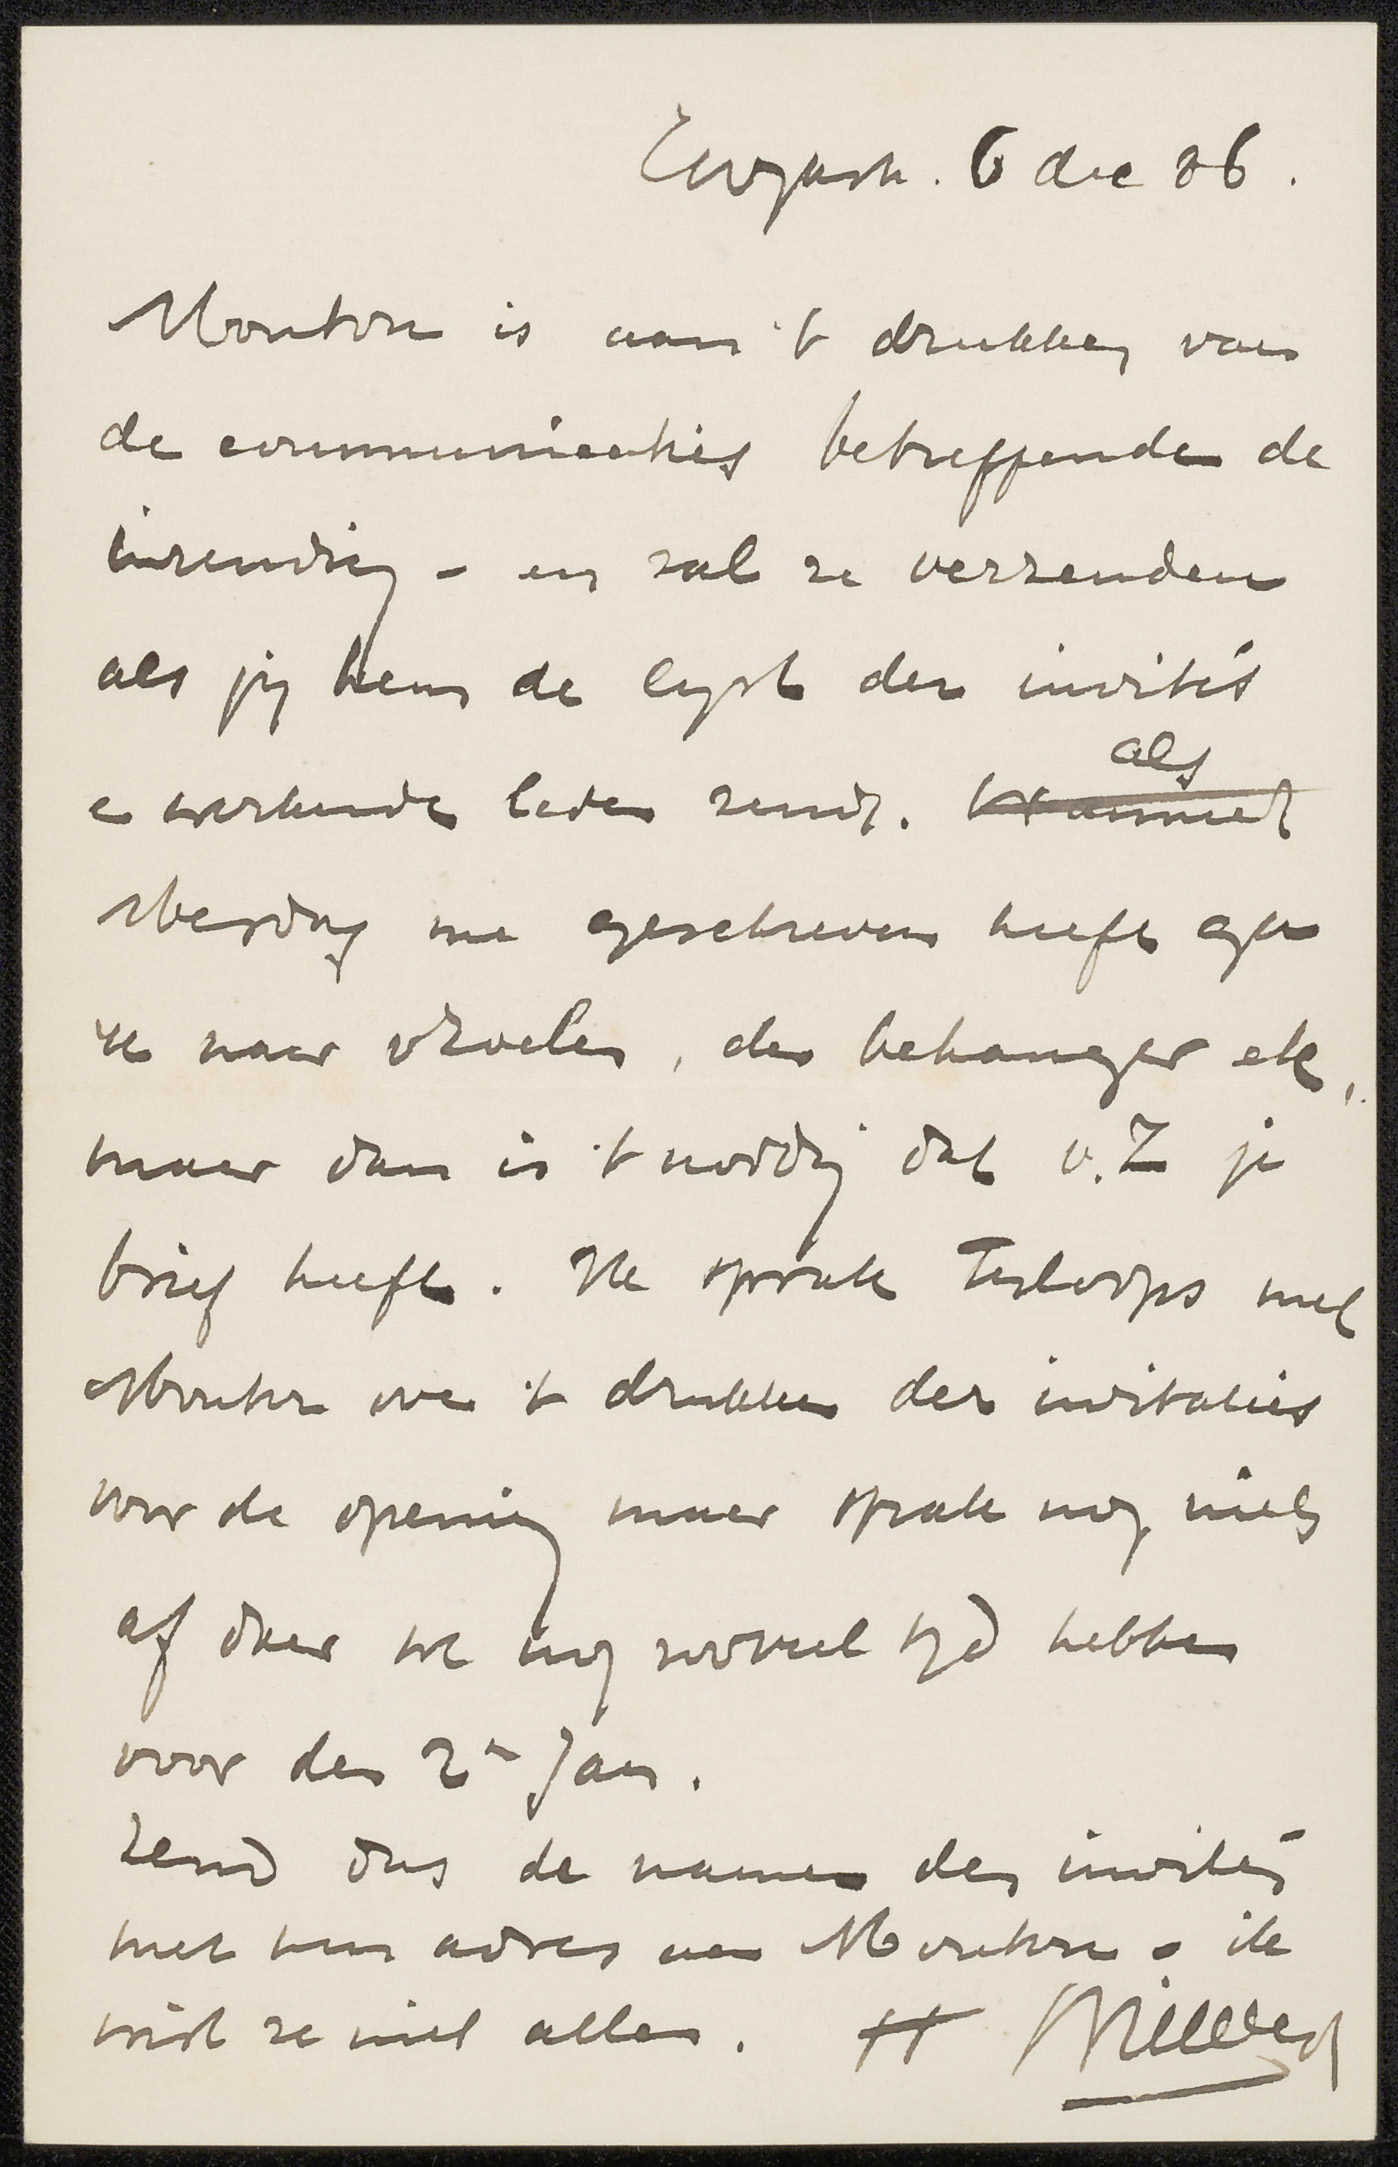 6 dec 86.
Mouton is aan 't drukken van
de communicaties betreffende de
inzending - en zal ze verzenden
als jij hem de lyst der invités
e werkende leden zendt. Wanneer als
Mesdag me geschreven heeft ga
ik naar , den behanger etc,
maar dan is 't noodig dat v. Z je
brief heeft. Ik sprak Terloops met
Mouton over 't drukken der invitaties
voor de opening maar sprak nog niets
af daar we nog zooveel tyd hebben
voor den 2n Jan.
Zend dus de namen der invités
met hun adres aan Mouton - ik
wist ze niet allen. tt Willem